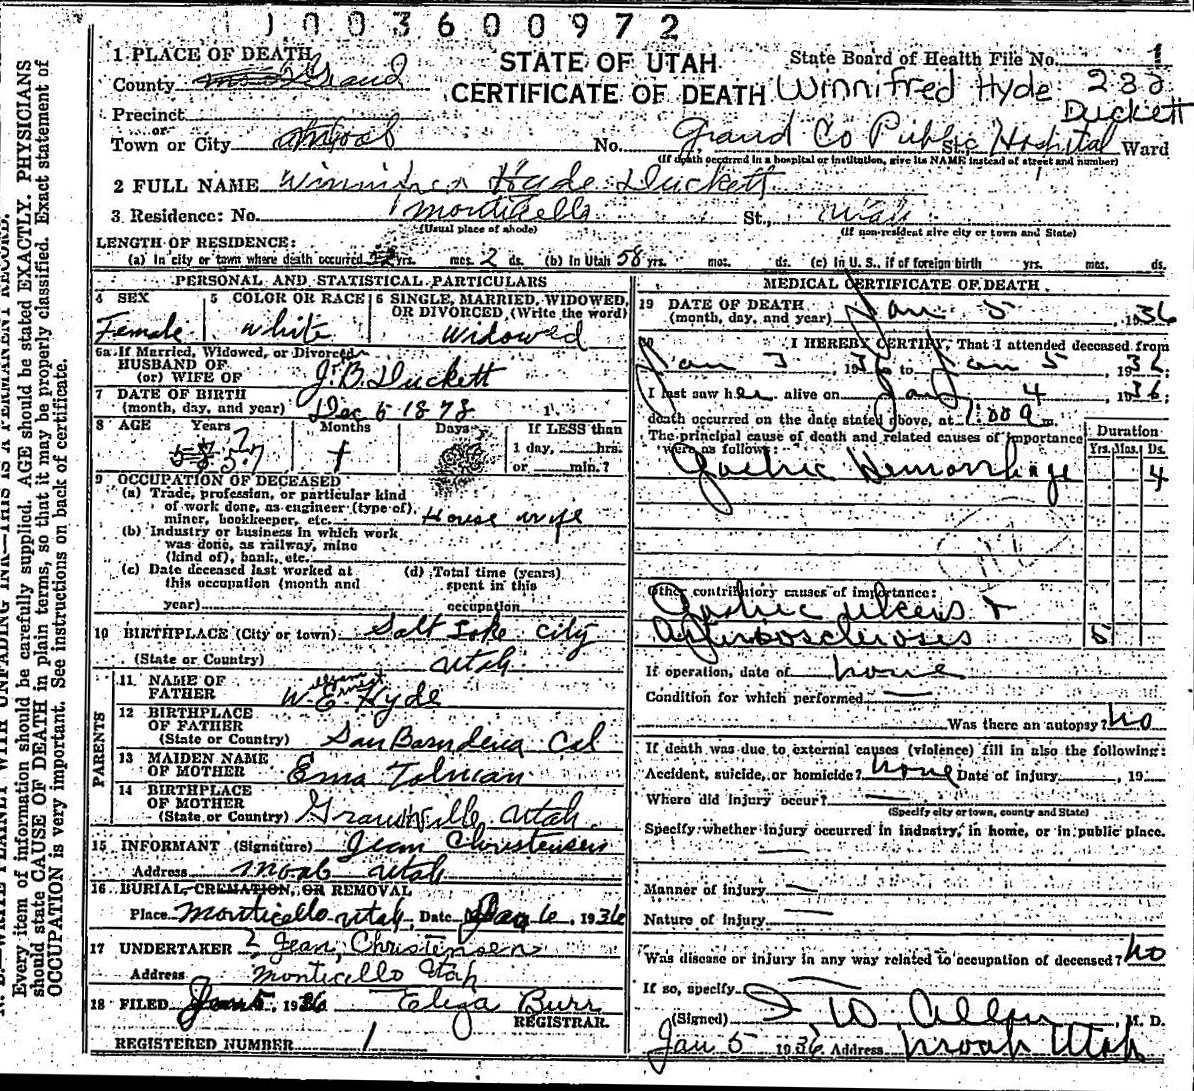 1003600972
STATE OF UTAH
CERTIFICATE OF DEATH
State Board of Health File No. 1
Winnifred Hyde Duckett 232
1 PLACE OF DEATH
County Grand
Precinct
or
Town or City Moab No. Grand Co Public Hospital St., Ward
(If death occurred in a hospital or institution, give its NAME instead of street and number)
2 FULL NAME Winnifred Hyde Duckett
3 Residence: No. Monticello St., Utah
(Usual place of abode) (If non-resident give city or town and State)
LENGTH OF RESIDENCE:
(a) In city or town where death occurred yrs. mos. 2 ds. (b) In Utah 58 yrs. mos. ds. (c) In U. S., if of foreign birth yrs. mos. ds.
PERSONAL AND STATISTICAL PARTICULARS
4 SEX 5 COLOR OR RACE 6 SINGLE, MARRIED, WIDOWED,
OR DIVORCED, (Write the word)
Female white Widowed
6a If Married, Widowed, or Divorced
HUSBAND OF
(or) WIFE OF J. B. Duckett
7 DATE OF BIRTH
(month, day, and year) Dec 5 1878
8 AGE Years Months Days If LESS than
1 day, hrs.
or min.?
58 57 1
9 OCCUPATION OF DECEASED
(a) Trade, profession, or particular kind
of work done, as engineer (type of),
miner, bookkeeper, etc. House wife
(b) Industry or business in which work
was done, as railway, mine
(kind of), bank, etc.
(c) Date deceased last worked at
this occupation (month and
year)
(d) Total time (years)
spent in this
occupation
10 BIRTHPLACE (City or town) Salt Lake City
(State or Country) Utah
PARENTS
11 NAME OF
FATHER W. E. Hyde
12 BIRTHPLACE
OF FATHER
(State or Country) San Basndena Cal
13 MAIDEN NAME
OF MOTHER Ema Tolman
14 BIRTHPLACE
OF MOTHER
(State or Country) Grantsville Utah
15 INFORMANT (Signature) Jean Christensen
Address Moab Utah
16 BURIAL, CREMATION, OR REMOVAL
Place Monticello Utah, Date Jan 6, 1936
17 UNDERTAKER ? Jean Christensen
Address Monticello Utah
18 FILED Jan 5, 1936 Eliza Burr
REGISTRAR.
REGISTERED NUMBER 1
MEDICAL CERTIFICATE OF DEATH
19 DATE OF DEATH
(month, day, and year) Jan 5, 1936
20 I HEREBY CERTIFY, That I attended deceased from
Jan 3, 1936 to Jan 5, 1936;
I last saw her alive on Jan 4, 1936;
death occurred on the date stated above, at 1:00 a m.
The principal cause of death and related causes of importance
were as follows:
Duration
Yrs. Mos. Ds.
Gastric Hemorrhage 4
Other contributory causes of importance:
Gastric ulcers +
Arteriosclerosis 5
If operation, date of none
Condition for which performed
Was there an autopsy? no
If death was due to external causes (violence) fill in also the following:
Accident, suicide, or homicide? none Date of injury , 19
Where did injury occur?
(Specify city or town, county and State)
Specify whether injury occurred in industry, in home, or in public place.
Manner of injury
Nature of injury
Was disease or injury in any way related to occupation of deceased? no
If so, specify
(Signed) I W Allen, M. D.
Jan 5 1936 Address Moab Utah
N. B.—WRITE PLAINLY WITH UNFADING INK—THIS IS A PERMANENT RECORD.
Every item of information should be carefully supplied. AGE should be stated EXACTLY. PHYSICIANS
should state CAUSE OF DEATH in plain terms, so that it may be properly classified. Exact statement of
OCCUPATION is very important. See instructions on back of certificate.